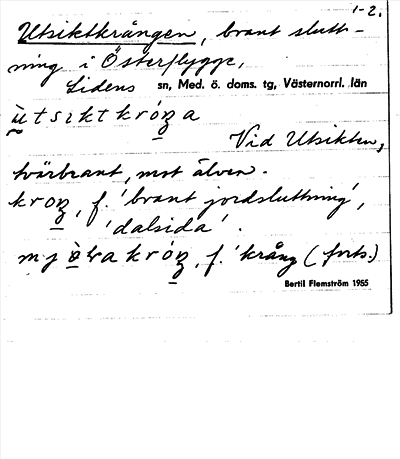 1-2.
Utsiktkrången, brant slutt-
ning i Österflygge,
Lidens sn, Med. ö. doms. tg, Västernorrl. län
Vid Utsikten,
tvärbrant, mot älven.
f. 'brant jordsluttning',
'dalsida'.
f. 'krång (forts.)
Bertil Flemström 1955